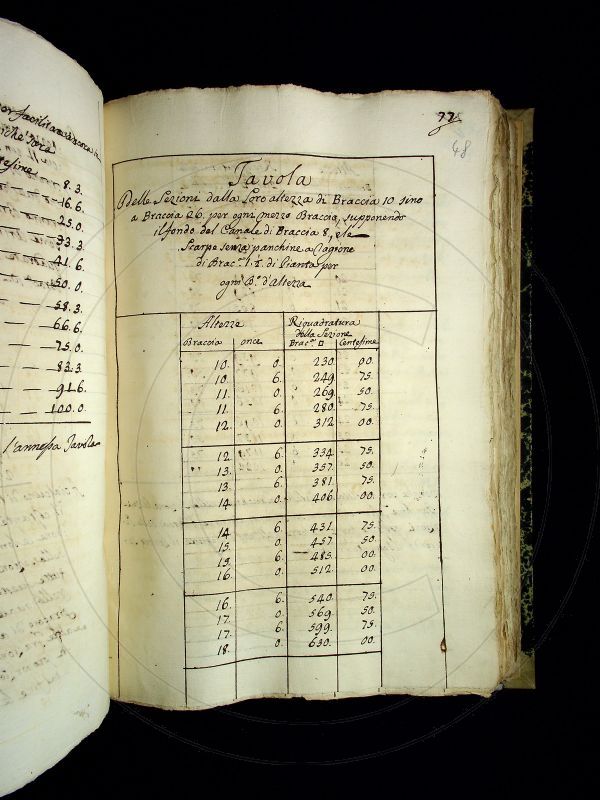 per facilitare
che Tore
tesime
8. 3.
16. 6.
25. 0.
33. 3.
41. 6.
50. 0.
58. 3.
66. 6.
75. 0.
83. 3.
91. 6.
100. 0.
l'annessa Tavola
77.
48
Tavola
Delle Sezioni dalla loro altezza di Braccia 10 sino
a Braccia 26. per ogni mezzo Braccio, supponendo
il fondo del Canale di Braccia 8, e le
Scarpe senza panchine a ragione
di Brac.ᵃ 1.½. di Pianta per
ogni B.º d'Altezza
Altezze Riquadratura
della Sezione
Braccia once Brac.ᵃ □ Centesime
10. 0. 230. 00.
10. 6. 249. 75.
11. 0. 269. 50.
11. 6. 280. 75.
12. 0. 312. 00.
12. 6. 334. 75.
13. 0. 357. 50.
13. 6. 381. 75.
14. 0. 406. 00.
14. 6. 431. 75.
15. 0. 457. 50.
15. 6. 485. 00.
16. 0. 512. 00.
16. 6. 540. 75.
17. 0. 569. 50.
17. 6. 599. 75.
18. 0. 630. 00.